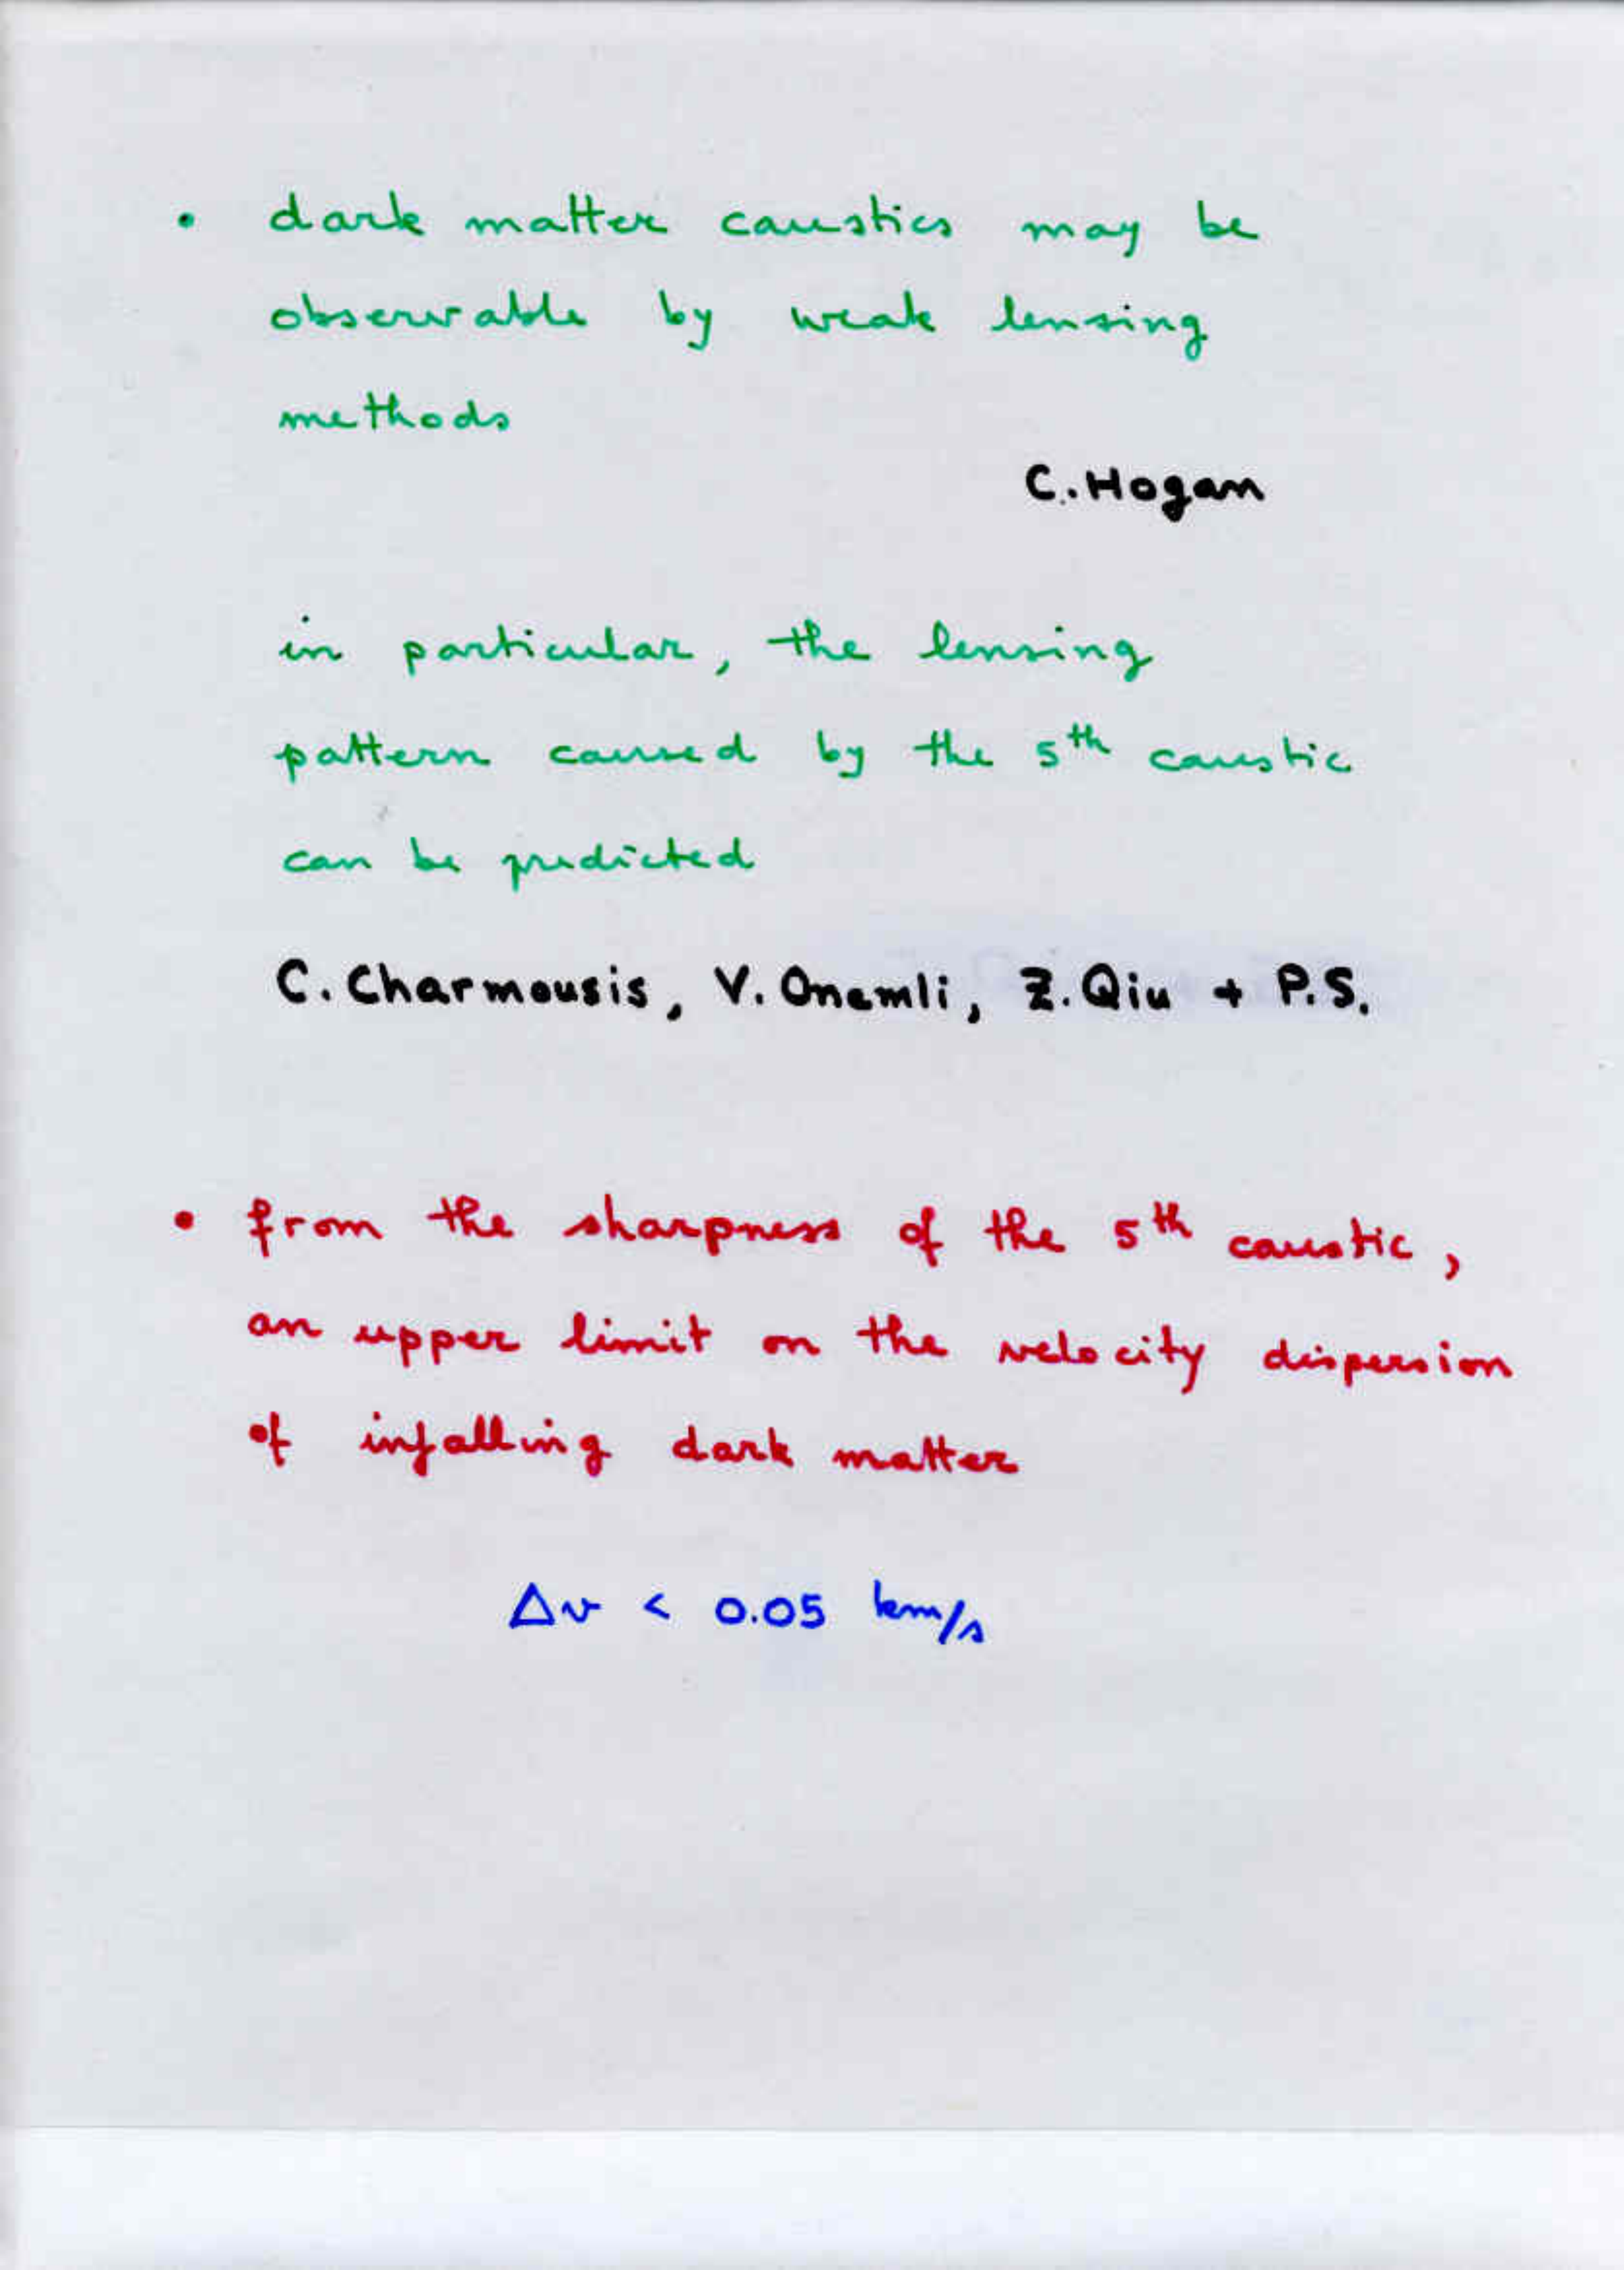 • dark matter caustics may be
observable by weak lensing
methods
C. Hogan
in particular, the lensing
pattern caused by the 5th caustic
can be predicted
C. Charmousis, V. Onemli, Z. Qiu + P.S.
• from the sharpness of the 5th caustic,
an upper limit on the velocity dispersion
of infalling dark matter
Δv < 0.05 km/s